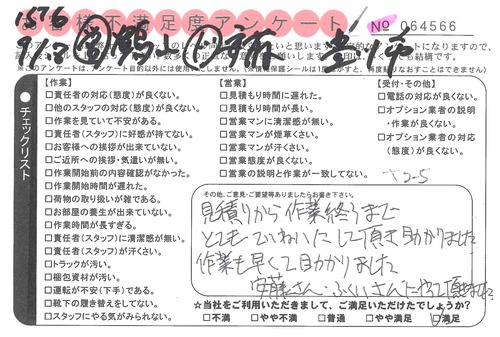 1576
お客様不満足度アンケート
No 064566
チェックリスト
【作業】
□責任者の対応(態度)が良くない。
□他のスタッフの対応(態度)が良くない。
□作業を見ていて不安がある。
□責任者(スタッフ)に好感が持てない。
□お客様への挨拶が出来ていない。
□ご近所への挨拶・気遣いが無い。
□作業開始前の内容確認がなかった。
□作業開始時間が遅れた。
□荷物の取り扱いが雑である。
□お部屋の養生が出来ていない。
□作業時間が長すぎる。
□責任者(スタッフ)に清潔感が無い。
□責任者(スタッフ)が汗くさい。
□トラックが汚い。
□梱包資材が汚い。
□運転が不安(下手)である。
□靴下の履き替えをしてない。
□スタッフにやる気がみられない。
【営業】
□見積もり時間に遅れた。
□見積もり時間が長い。
□営業マンに清潔感が無い。
□営業マンが煙草くさい。
□営業マンが汗くさい。
□営業態度が良くない。
□営業の説明と作業が一致してない。
【受付・その他】
□電話の対応が良くない。
□オプション業者の説明
・作業が良くない。
□オプション業者の対応
(態度)が良くない。
その他、ご意見・ご要望等ありましたらお書き下さい。
見積りから作業終うまで
とてもていねいにして頂き助かりました
作業も早くて助かりました
安藤さん、ふくいさんにやって頂きました
☆当社をご利用いただきまして、ご満足いただけでしょうか?
□不満 □やや不満 □普通 □やや満足 □満足